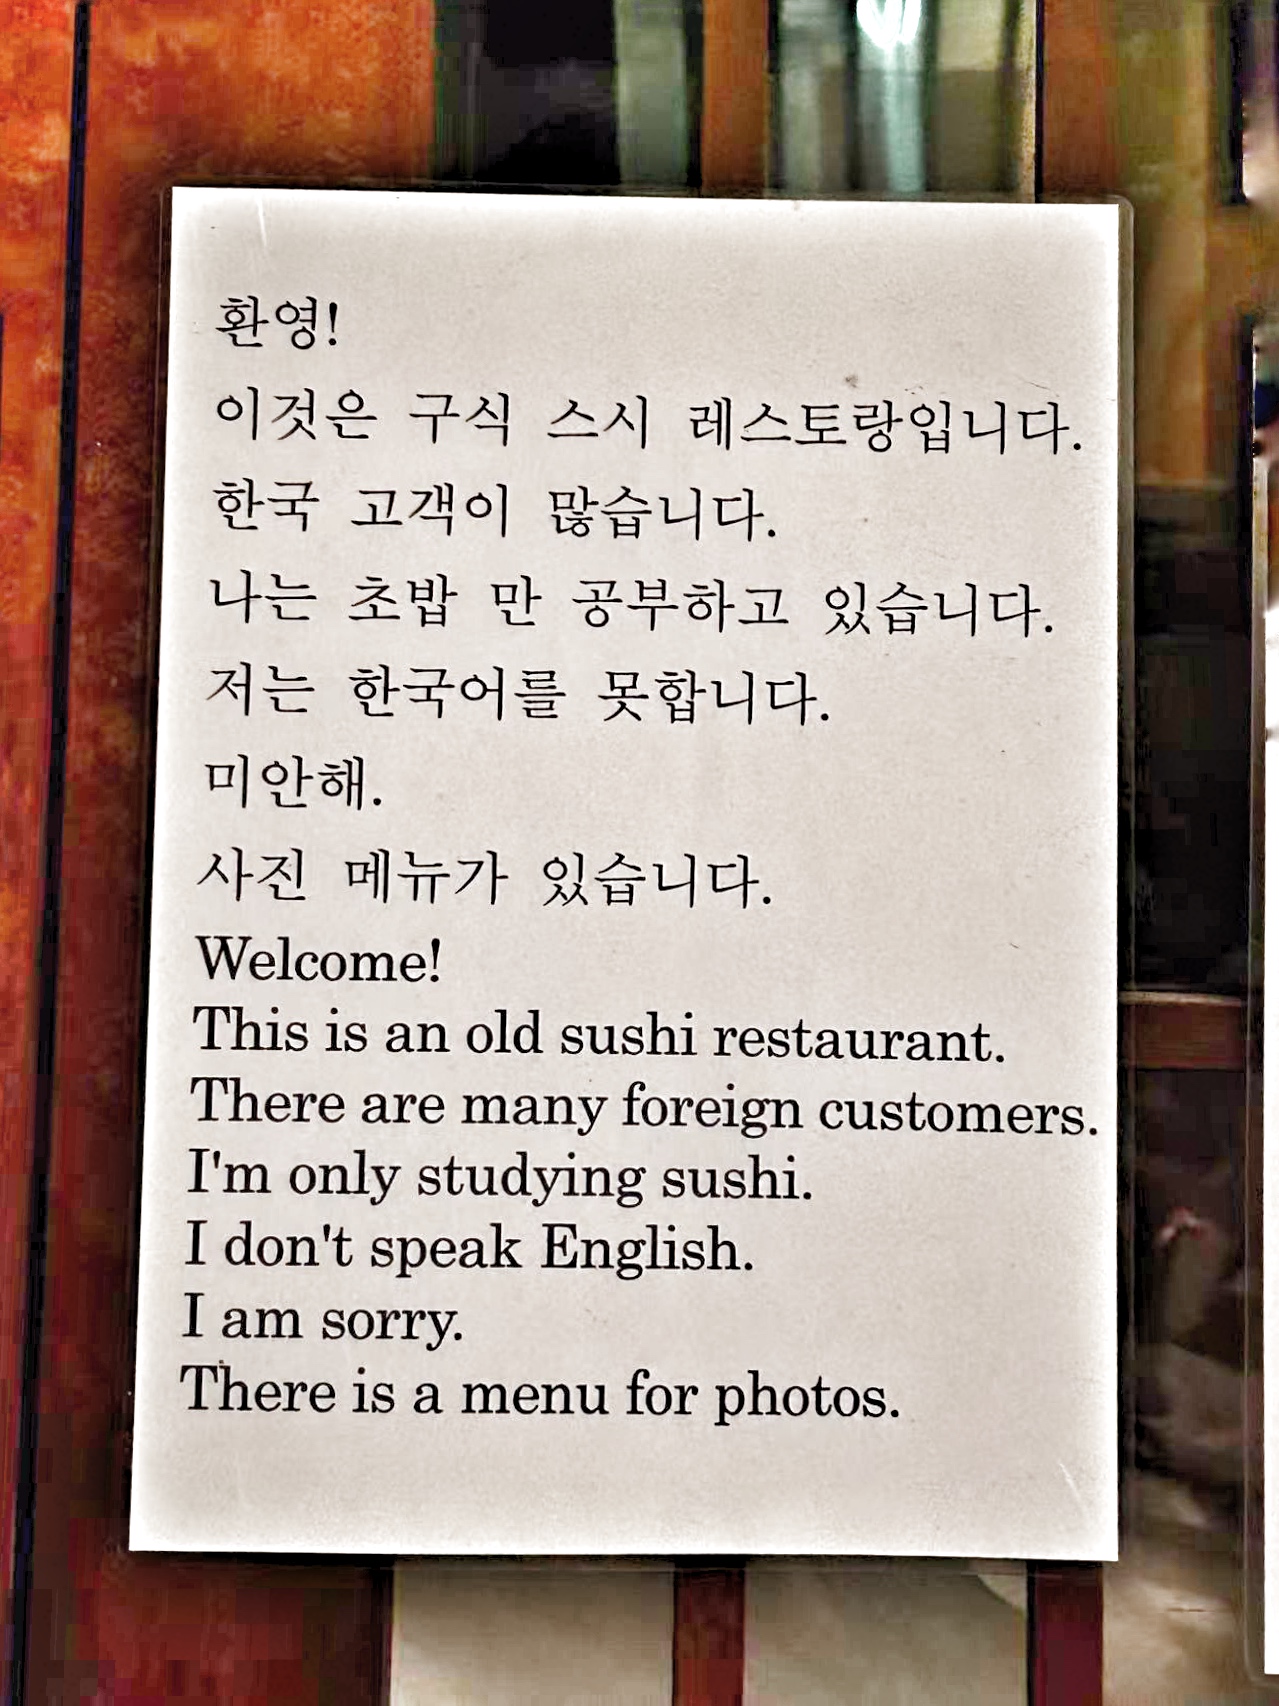 환영!
이것은 구식 스시 레스토랑입니다.
한국 고객이 많습니다.
나는 초밥 만 공부하고 있습니다.
저는 한국어를 못합니다.
미안해.
사진 메뉴가 있습니다.
Welcome!
This is an old sushi restaurant.
There are many foreign customers.
I'm only studying sushi.
I don't speak English.
I am sorry.
There is a menu for photos.